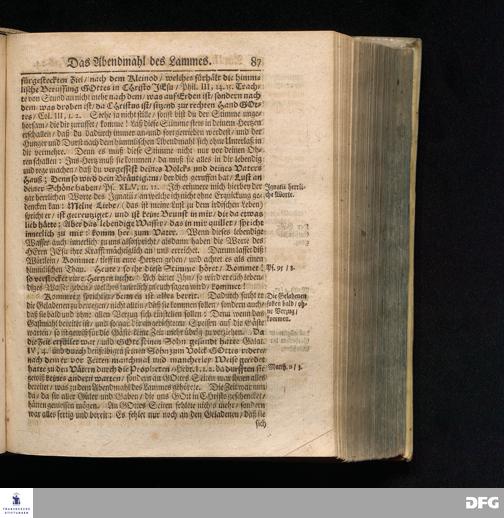 Das Abendmahl des Lammes. 87
fürgesteckten Ziel / nach dem Kleinod / welches fürhält die himm-
lische Beruffung GOttes in Christo JEsu / Phil. III, 14. 15. Trach-
te von Stund an nicht mehr nach dem / was auf Erden ist / sondern nach
dem was droben ist / da Christus ist / sitzend zur rechten Hand GOt-
tes / Col. III, 1. 2. Stehe ja nicht stille / sonst bist du der Stimme unge-
horsam / die dir zuruffet / komme! laß diese Stimme stets in deinem Hertzen
erschallen / daß du dadurch immer an- und fort getrieben werdest / und der
Hunger und Durst nach dem himmlischen Abendmahl sich ohne Unterlaß in
dir vermehre. Denn es muß diese Stimme nicht nur vor deinen Oh-
ren schallen: Ins Hertz muß sie kommen / da muß sie alles in dir lebendig
und rege machen / daß du vergessest deines Volcks und deines Vaters
Hauß; Denn so wird dein Bräutigam / der dich geruffen hat / Lust an
deiner Schöne haben / Ps. XLV, 11. 12. Ich erinnere mich hierbey der
herrlichen Worte des Ignatii / an welche ich nicht ohne Erquickung ge-
dencken kan: Meine Liebe / (das ist meine Lust zu dem irdischen Leben)
spricht er / ist gecreutziget / und ist keine Brunst in mir / die da etwas
lieb hätte; Aber das lebendige Wasser / das in mir quillet / spricht
innerlich zu mir: komm her zum Vater. Wenn dieses lebendige
Wasser auch innerlich zu uns also spricht / alsdann haben die Worte des
HErrn JEsu ihre Krafft an uns erreichet. Darum lasset diß
Wörtlein / Kommet / tieff in eure Hertzen gehen / und achtet es als einen
himmlischen Thau. Heute / so ihr diese Stimme höret / Kommet!
so verstocket eure Hertzen nicht.
Kommet / spricht er / denn es ist alles bereit. Dadurch sucht er
die Geladenen zu bewegen / nicht allein / daß sie kommen sollen / sondern auch /
daß sie bald und ohne allen Verzug sich einstellen sollen: Denn wenn das
Gastmahl bereitet ist / und sogar die angerichteten Speisen auf die Gäste
warten / so ist gewiß für die Gäste keine Zeit mehr übrig zu verziehen. Da
die Zeit erfüllet war / und GOtt seinen Sohn gesandt hatte Galat.
IV, 4. und durch denselbigen seinen Sohn zum Volck GOttes redete /
nachdem er vor Zeiten manchmal und mancherley Weise geredet
hatte zu den Vätern durch die Propheten / Hebr. I. 1. 2. da durfften sie
gewiß keines andern warten / sondern an GOttes Seiten war ihnen alles
bereitet / was zu dem Abendmahl des Lammes gehörete. Die Zeit war nun
da / da sie aller Güter und Gaben / die uns GOtt in Christo geschencket /
hätten geniessen mögen. An GOttes Seiten fehlete nichts mehr / sondern
war alles fertig und bereit: Es fehlet nur noch an den Geladenen / daß sie
sich
Ignatii herrli-
che Worte.
Ps. 95 / 8.
Die Geladenen
sollen bald / oh-
ne Verzug /
kommen.
DFG